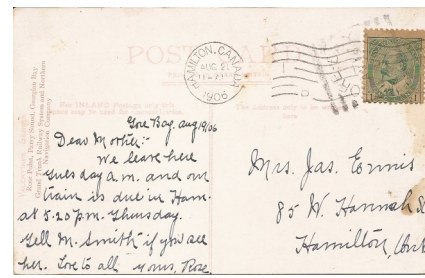 POST CARD
HAMILTON, CANADA
AUG 21
1906
For INLAND Postage only, this
The Address only to be
here
Rose Point, Parry Sound, Georgian Bay
Grand Trunk Railway System and Northern
Navigation Company
Gore Bay, Aug 19/06
Dear Mother:-
We leave here
Tuesday a.m. and our
train is due in Ham.
at 5.20 p.m. Thursday.
Tell M. Smith if you see
her. Love to all yours, Rose.
Mrs. Jas. Ennis
85 W. Hannah St
Hamilton, Ont